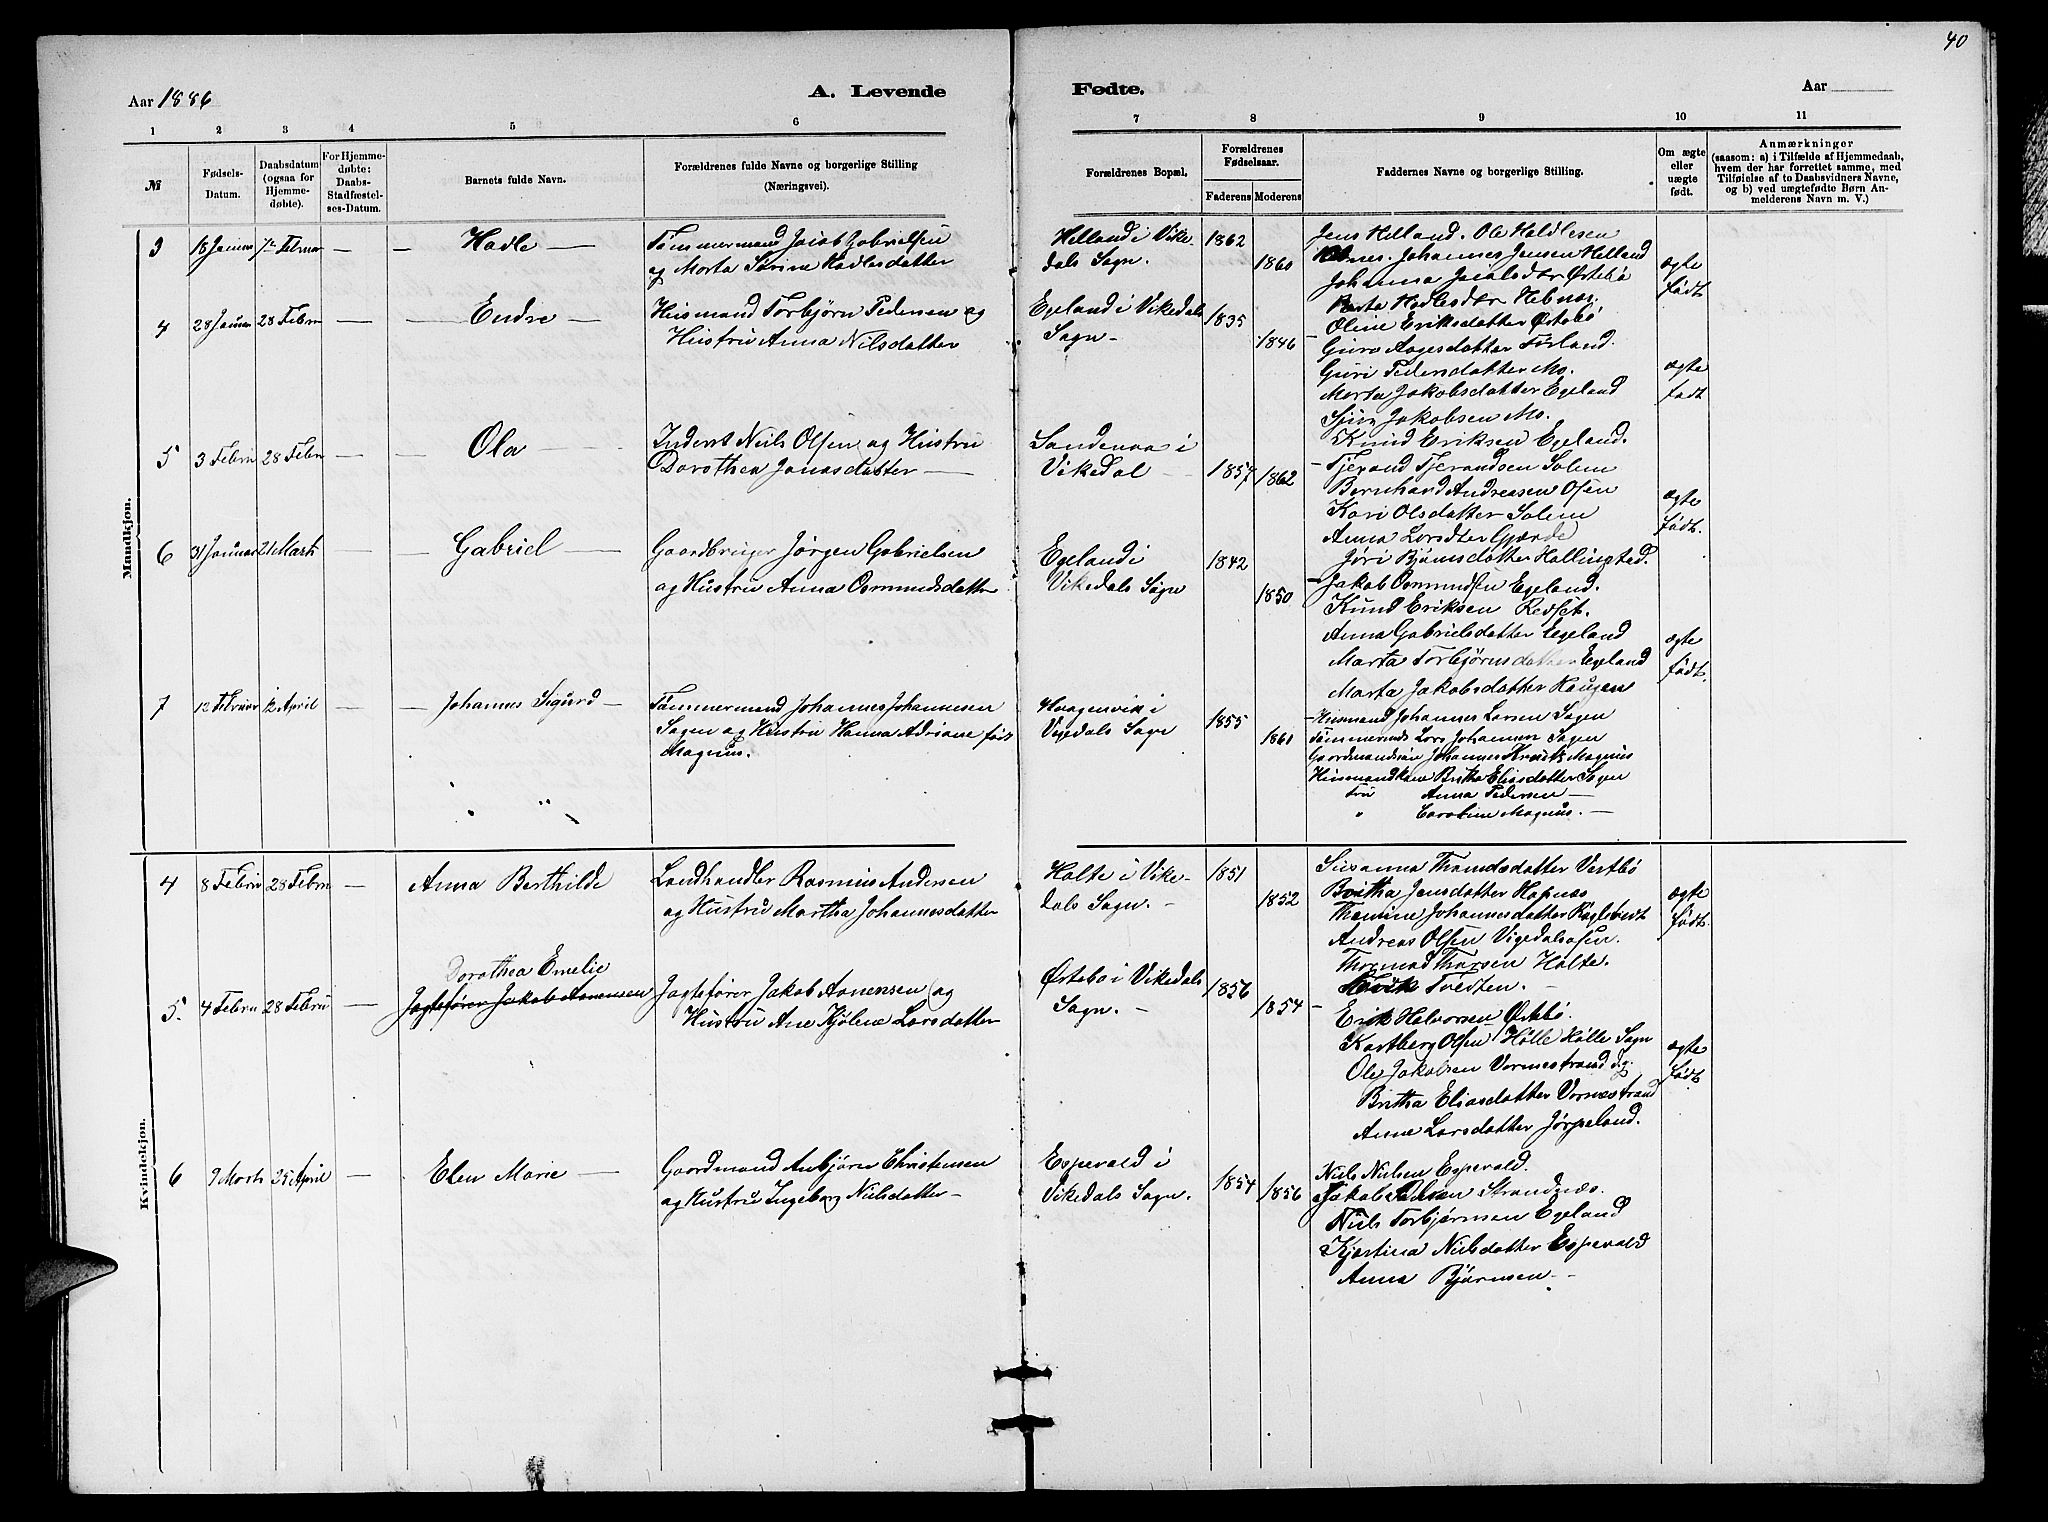 40
Aar 1886
A. Levende
Fødte.
Aar
1 2 3 4 5 6 7 8 9 10 11
№
Fødsels-
Datum.
Daabsdatum
(ogsaa for
Hjemme-
døbte).
For Hjemme-
døbte:
Daabs-
Stadfæstel-
ses-Datum.
Barnets fulde Navn.
Forældrenes fulde Navne og borgerlige Stilling
(Næringsvei).
Forældrenes Bopæl.
Forældrenes
Fødselsaar.
Faderens Moderens
Faddernes Navne og borgerlige Stilling.
Om ægte
eller
uægte
født.
Anmærkninger
(saasom: a) i Tilfælde af Hjemmedaab,
hvem der har forrettet samme, med
Tilføielse af to Daabsvidners Navne,
og b) ved uægtefødte Børn An-
melderens Navn m. V.)
Mandkjøn.
3 18 Januar 7de Februar — Hadle —
Tømmermand Jacob Gabrielsen
og Marta Serine Hadlesdatter
Helland i Vike-
dals Sogn.
1862
1860
Jens Helland. Ole Haldlesen
Johannes Jensen Helland
Johanna Jacobsdtr Østebø
Berta Hadlesdtr Hebnæs
Oline Eriksdatter Østebø
ægte
født
4 28 Januar 28 Febru — Endre —
Husmand Torbjørn Pedersen og
Hustru Anna Nilsdatter
Egeland i Vikedals
Sogn —
1835
1846
Guro Aagesdatter Førland.
Guri Pedersdatter Mo.
Marta Jakobsdatter Egeland
Sjur Jakobsen Mo.
Knud Eriksen Egeland.
ægte
født
5 3 Febru 28 Febru — Ola —
Inderst Niels Olsen og Hustru
Dorothea Jonasdatter —
Sandenaa i
Vikedal —
1857
1862
Tjerand Tjerandsen Solem
Bernhard Andreasen Øsen
Kari Olsdatter Solem
Anna Larsdter Gjærde
Jøri Bjørnsdatter Hallingstad.
ægte
født.
6 31 Januar 21 Marts — Gabriel —
Gaardbruger Jørgen Gabrielsen
og Hustru Anna Osmundsdatter
Egeland i
Vikedals Sogn
1842
1850
Jakob Osmundsen Egeland.
Knud Eriksen Redset.
Anna Gabrielsdatter Egeland
Marta Torbjørnsdatter Egeland
Marta Jakobsdatter Haugen
ægte
født.
7 12 Februar 12 April — Johannes Sigurd —
Tømmermand Johannes Johannesen
Sagen og Hustru Hanna Adriane født
Magnus.
Haagenvik i
Vigedals Sogn
1855
1861
Husmand Johannes Larsen Sagen
Tømmermand Lars Johannesen Sagen
Gaardmandssøn Johannes Magnus
Husmandkone Britha Eliasdatter Sagen
Fru Anna Pedersen —
" Caroline Magnus. —
Kvindekjøn.
4 8 Febru 28 Febru — Anna Berthilde
Landhandler Rasmus Andersen
og Hustru Martha Johannesdatter
Holte i Vike-
dals Sogn. —
1851
1852
Susanna Thomdsdatter Vestbø
Britha Jensdatter Hapnæs
Johannesdatter
Andreas Olsen Vigedalsøsen.
Thormod Thorsen Holte.
Tvedten. —
ægte
født.
5. 4 Febru 28 Febru — Dorothea Emelie
Jagtefører Jakob Aanensen
Jagtefører Jakob Aanensen og
Hustru Ane Kjølene Larsdatter
Østebø i Vikedals
Sogn. —
1856
1854
Erik Halvorsen Østebø
Kastberg Olsen Hølle Hølle Sogn
Ole Jakobsen Vormestrand
Britha Eliasdatter Vormestrand
Anne Larsdatter Jørpeland.
ægte
født
6 7 Marts 25 April — Elen Marie —
Gaardmand Anbjørn Christensen
og Hustru Ingeborg Nielsdatter —
Espevold i
Vikedals Sogn.
1854
1856
Niels Nielsen Espevold.
Jakob Strandnæs.
Niels Torbjørnsen Egeland
Kjestina Nielsdatter Espevold
Anna Bjørnsen —